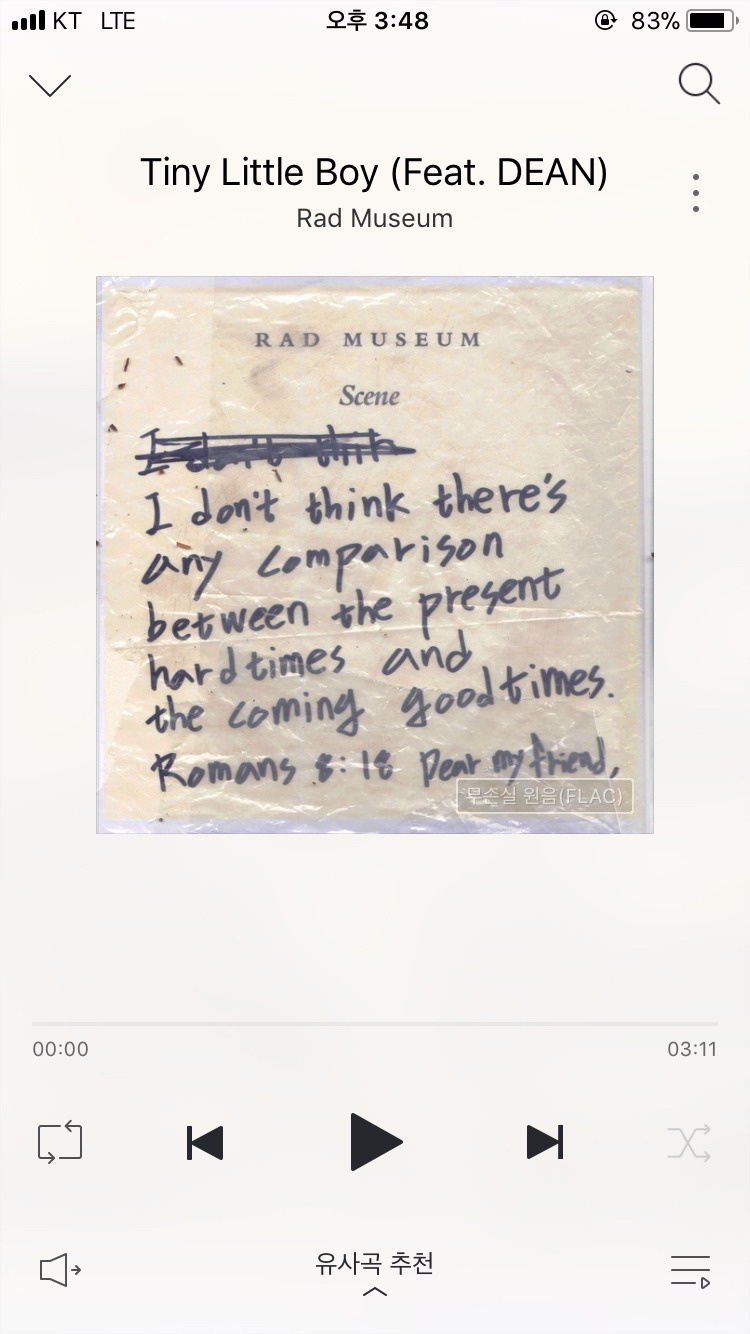 KT LTE 오후 3:48 83%
Tiny Little Boy (Feat. DEAN)
Rad Museum
RAD MUSEUM
Scene
I don't think
I don't think there's
any comparison
between the present
hard times and
the coming good times.
Romans 8:18 Dear my friend,
무손실 원음(FLAC)
00:00 03:11
유사곡 추천